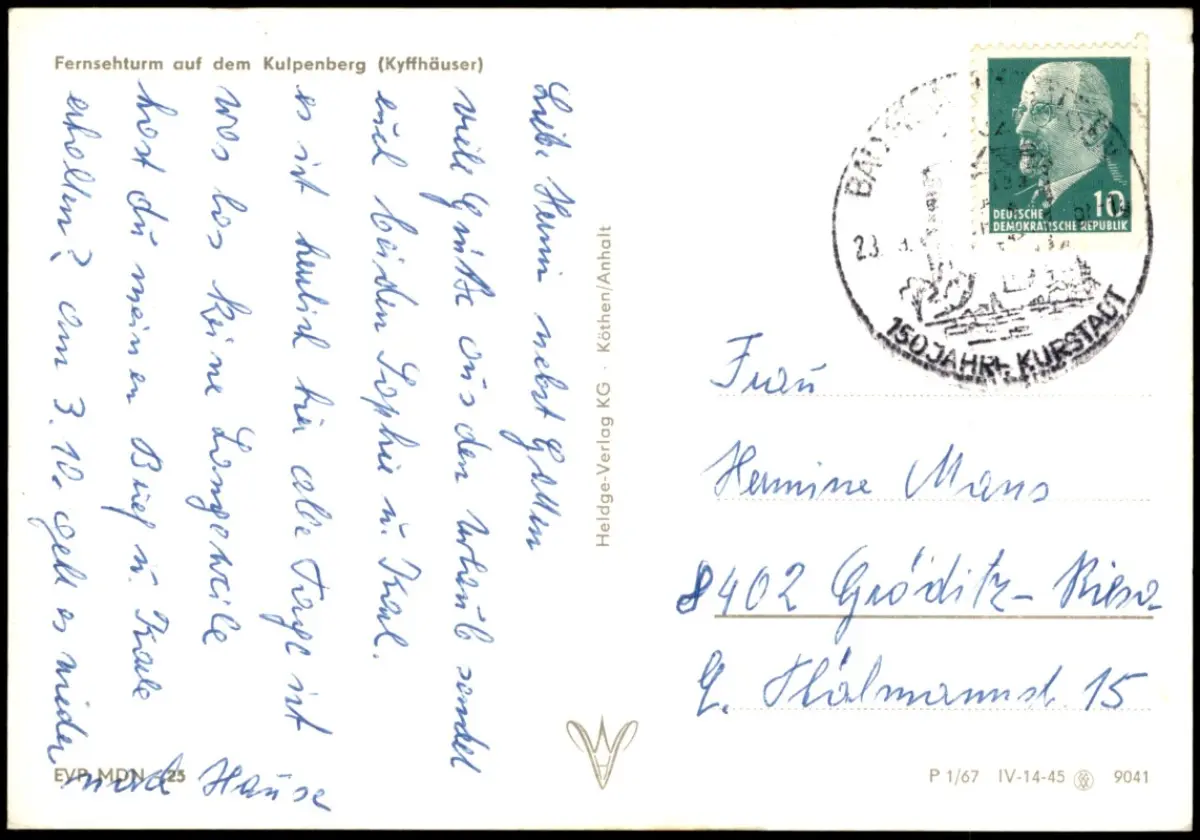 Fernsehturm auf dem Kulpenberg (Kyffhäuser)
Liebe Hermin nebst Gatten
viele Grüße aus den Urlaub sendet
euch beiden Sophie u. Karl.
es ist herlich hier alle Tage ist
was los keine Langeweile
hast du meinen Brief u. Karte
erhalten? am 3. 10. geht es wieder
nach Hause
EVP MDN 25
Heldge-Verlag KG · Köthen/Anhalt
DEUTSCHE
DEMOKRATISCHE REPUBLIK
10
BAD
23.
150 JAHRE KURSTADT
Frau
Hermine Mans
8402 Gröditz-Riesa
E. Thälmannst. 15
P 1/67 IV-14-45 9041